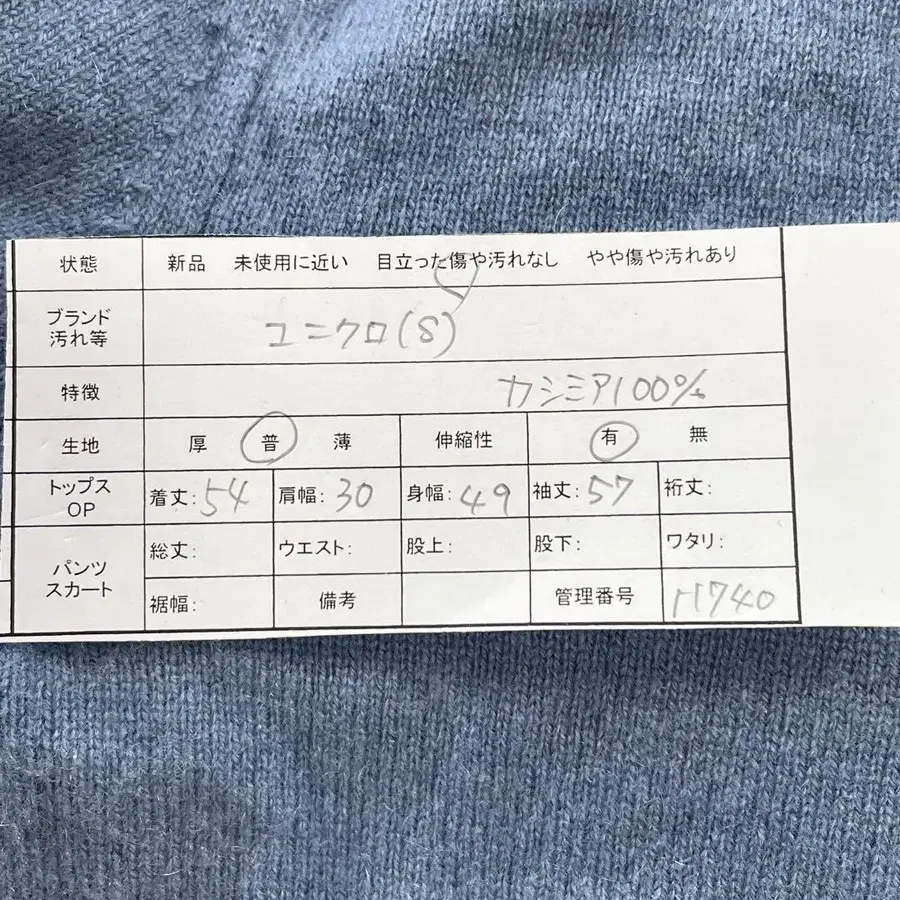 状態 新品 未使用に近い 目立った傷や汚れなし やや傷や汚れあり
ブランド
汚れ等
ユニクロ(S)
特徴 カシミア100%
生地 厚 普 薄 伸縮性 有 無
トップス
OP
着丈:54 肩幅:30 身幅:49 袖丈:57 裄丈:
パンツ
スカート
総丈: ウエスト: 股上: 股下: ワタリ:
裾幅: 備考 管理番号